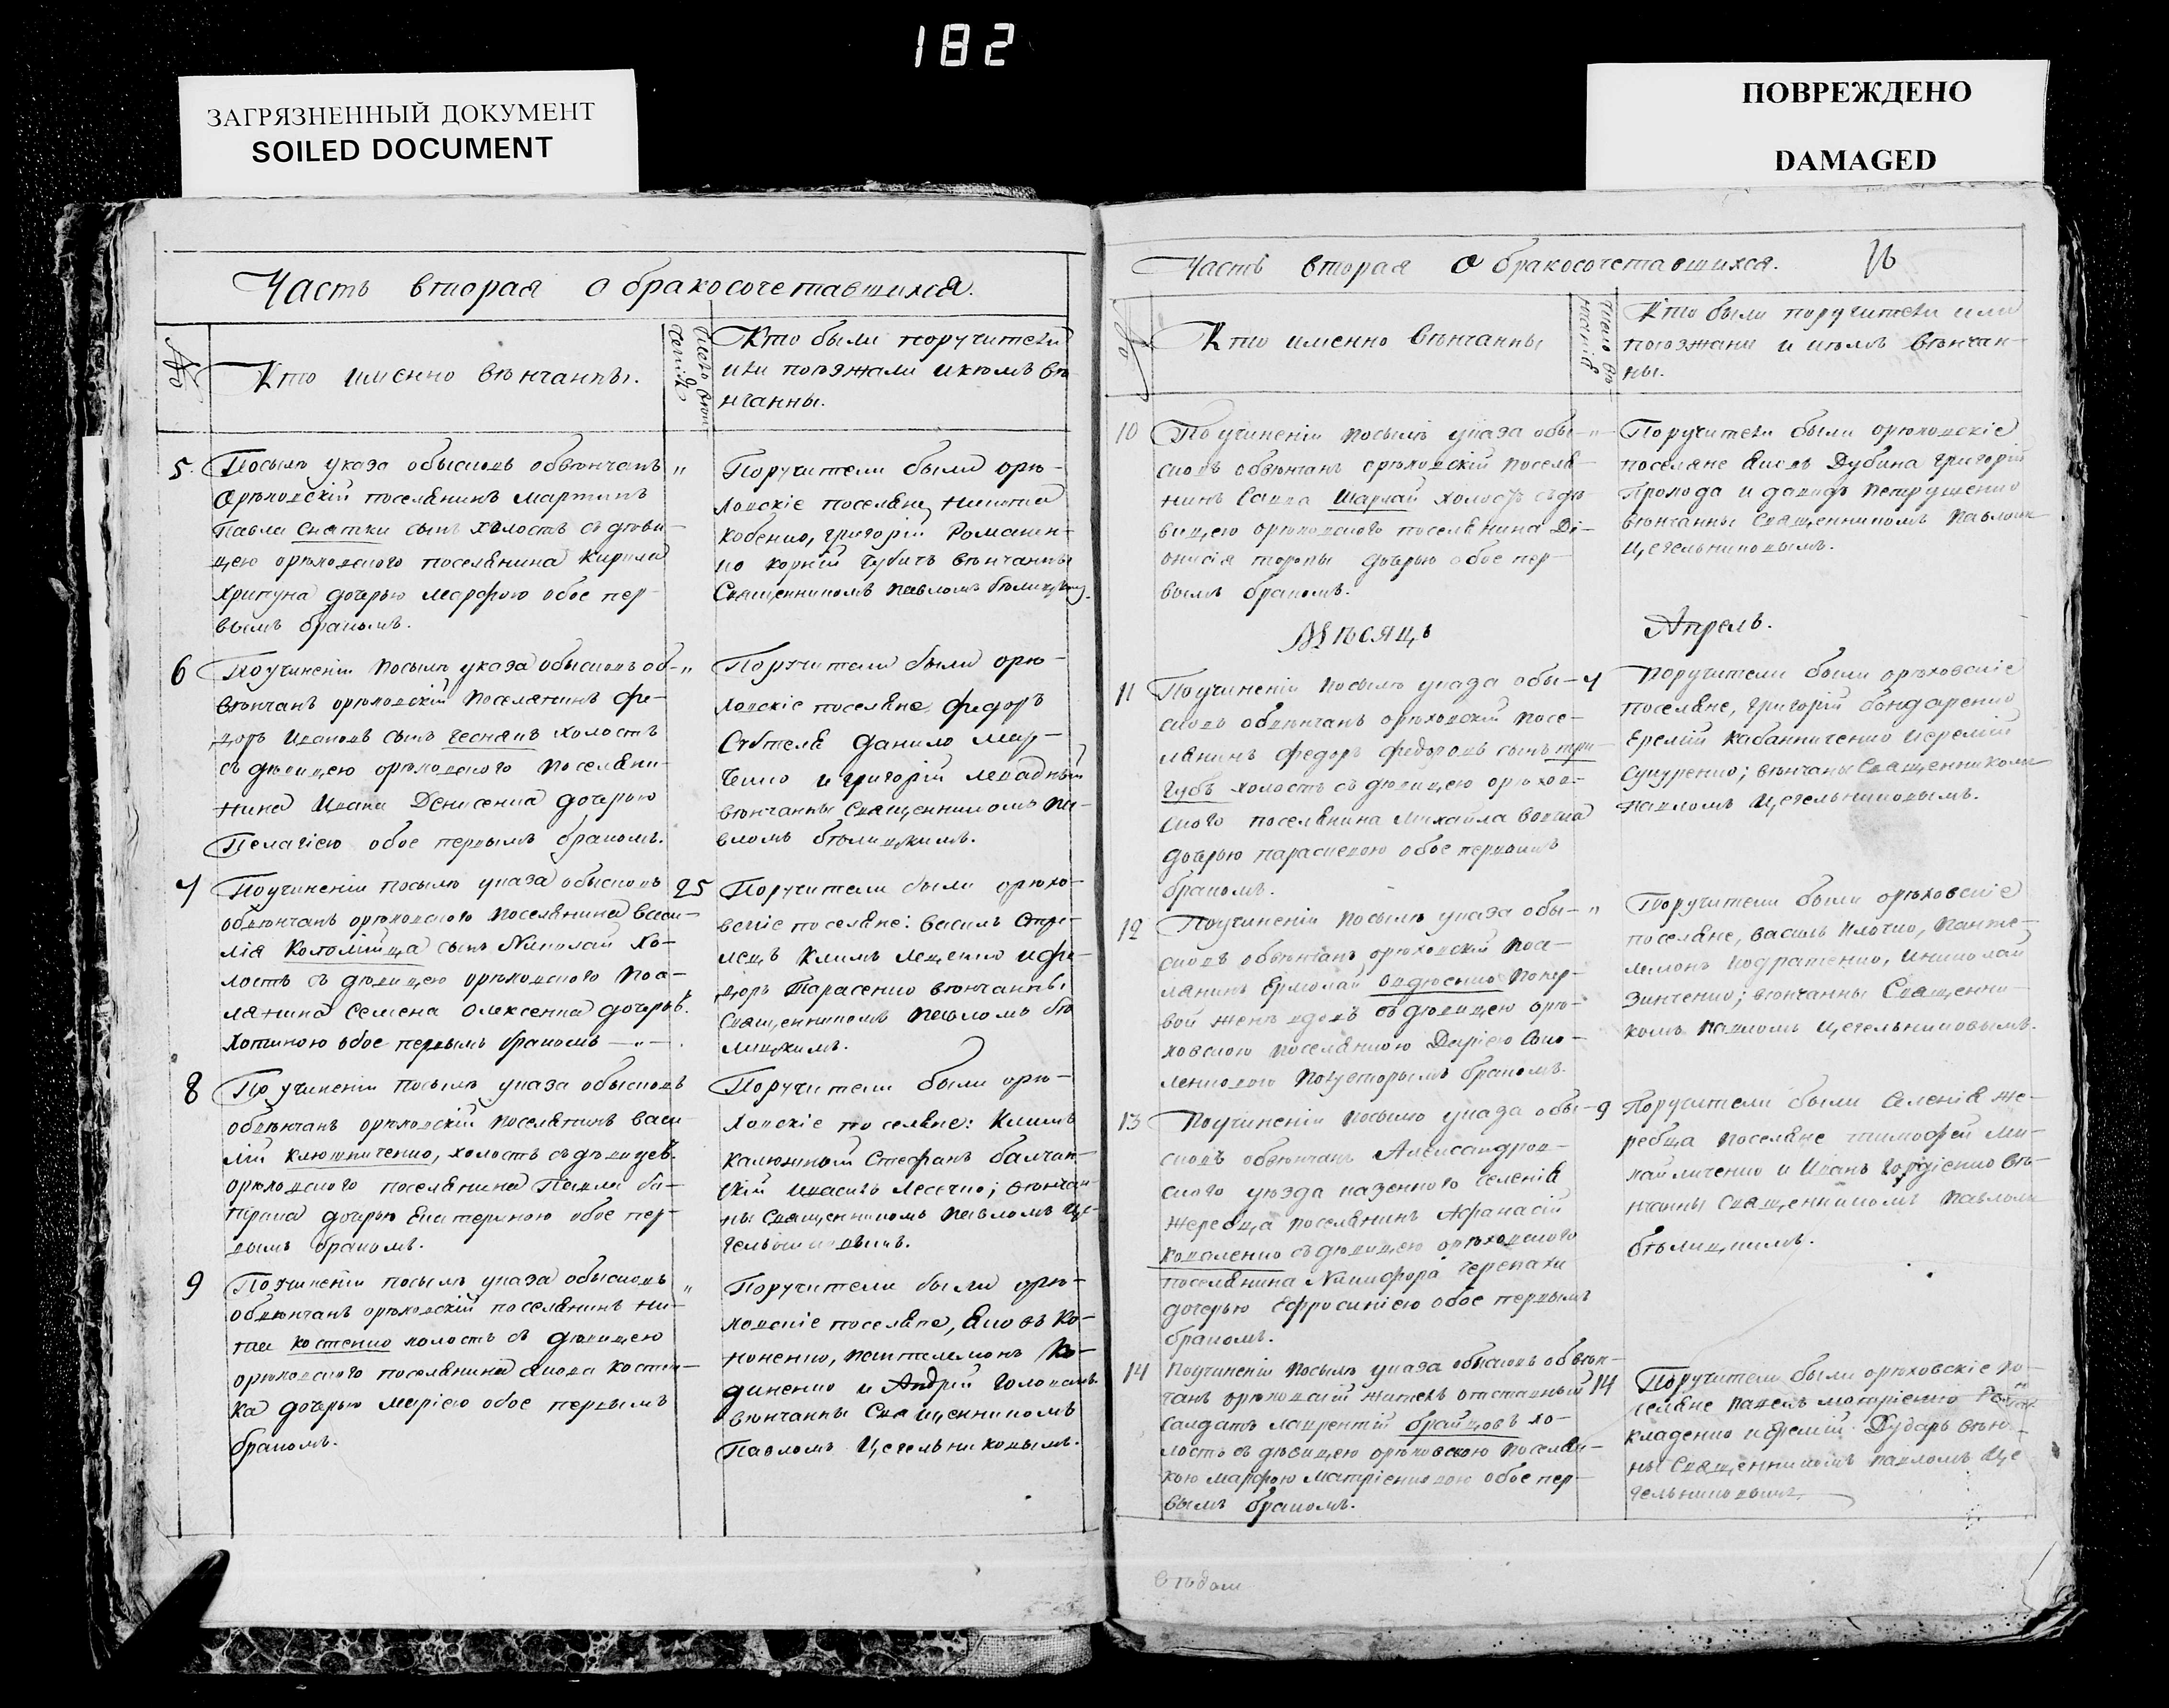 182
ЗАГРЯЗНЕННЫЙ ДОКУМЕНТ
SOILED DOCUMENT
ПОВРЕЖДЕНО
DAMAGED
Часть вторая о бракосочетавшихся.
№
Кто именно вѣнчанны.
Кто были поручители
или поезжали и кѣмъ вѣ
нчанны.
5. Посылѣ указа обысковъ обвѣнчанъ "
Орѣховскій поселянинъ Мартинъ
Павла Снѣтки сынъ холостъ съ дѣви-
цею орѣховского поселянина Кирила
Хрипуна дочерью Марфою обое пер-
вымъ бракомъ.
Поручители были орѣ-
ховскіе поселяне, Никита
Кобенко, григорій Романен-
ко корній Чубичъ вѣнчанны
Священникомъ Павломъ Бѣлицким.
6 Поучиненіи посылѣ указа обысковъ об- "
вѣнчанъ орѣховскій поселянинъ Фе-
доръ Ивановъ сынъ Чеснакъ холостъ
съ дѣвицею орѣховского поселяни-
нина Ивана Денисенка дочерью
Пелагіею обое первымъ бракомъ.
Поручители были орѣ-
ховскіе поселяне, федоръ
Субтеля данило Мар-
ченко и григорій левадный
вѣнчанны Священникомъ Па-
вломъ бѣлицкимъ.
7 Поучиненіи посылѣ указа обысковъ 25
обвѣнчанъ орѣховского поселянина васи-
лія Коломійца сынъ Николай хо-
лостъ съ дѣвицею орѣховского посе-
лянина Семена Олексенка дочерью
Хотиною обое первымъ бракомъ — " —
Поручители были орѣхо-
вскіе поселяне: василь Стре-
лецъ Климъ Лещенко и фе-
доръ Тарасенко вѣнчанны
Священникомъ Павломъ бѣ
лицкимъ.
8 По учиненіи посылѣ указа обысковъ
обвѣнчанъ орѣховскій поселянинъ васи
лій Клюшниченко, холостъ съ дѣвицею
орѣховского поселянина Павла
дочерью Екатериною обое пер-
вымъ бракомъ.
Поручители были орѣ-
ховскіе поселяне: Климъ
Калюжный Стефанъ балчан-
скій Лесечко; вѣнчан-
ны Священникомъ Павломъ Це-
гельниковымъ.
9 Поучиненіи посылѣ указа обысковъ "
обвѣнчанъ орѣховскій поселянинъ Ни-
кита Костенко холостъ съ дѣвицею
орѣховского поселянина Якова Кости-
ка дочерью Маріею обое первымъ
бракомъ.
Поручители были орѣ-
ховскіе поселяне, Яковъ Ко-
ноненко, пантелемонъ Ко-
диненко и Андрій Головань
вѣнчанны Священникомъ
Павломъ Цегельниковымъ.
Часть вторая о бракосочетавшихся. 76
№
Кто именно вѣнчанны
Кто были поручители или
поезжани и кѣмъ вѣнчан-
ны.
10 По учиненіи посылѣ указа обы- "
сковъ обвѣнчанъ орѣховскій поселя-
нинъ Савва Шарлай холостъ съ дѣ-
вицею орѣховского поселянина Ді-
онисія торопы дочерью обое пер-
вымъ бракомъ.
Поручители были орѣховскіе
поселяне Яковъ Дубина григорій
Прохода и давидъ Петрушенко
вѣнчанны Священникомъ Павломъ
Цегельниковымъ.
Мѣсяцъ Апрель.
11 Поучиненіи посылѣ указа обы- 7
сковъ обвѣнчанъ орѣховскій посе-
лянинъ федоръ федоровъ сынъ три-
губъ холостъ съ дѣвицею орѣхов-
ского поселянина Михайла вовка
дочерью параскевою обое первымъ
бракомъ.
Поручители были орѣховскіе
поселяне, григорій бондаренко
Еремій Кабанниченко и еремій
Супруненко; вѣнчаны Священникомъ
павломъ Цегельниковымъ.
12 Поучиненіи посылѣ указа обы- "
сковъ обвѣнчанъ орѣховскій посе-
лянинъ Ермолай Овдѣенко попер-
вой женѣ вдовъ съ дѣвицею орѣ-
ховскою поселянкою Даріею Соко-
ленковою полувторымъ бракомъ.
Поручители были орѣховскіе
поселяне, василь Клочко, Панте-
лимонъ Кодратенко, и николай
Зинченко; вѣнчанны Священни-
комъ павломъ Цегельниковымъ.
13 Поучиненіи посылѣ указа обы- 9
сковъ обвѣнчанъ Александров-
ского уѣзда казенного Селенія
жеребца поселянинъ Афанасій
коваленко съ дѣвицею орѣховского
поселянина Никифора черепахи
дочерью Ефросиніею обое первымъ
бракомъ.
Поручители были Селенія же-
ребца поселяне тимофей Ми-
хайличенко и Иванъ Гордіенко вѣ-
нчанны Священникомъ Павломъ
бѣлицкимъ.
14 Поучиненіи посылѣ указа обысковъ обвѣн-
чанъ орѣховскій житель отставный 14
Салдатъ лаврентій брайцовъ хо-
лостъ съ дѣвицею орѣховскою поселян-
кою Марфою Матвіенковою обое пер-
вымъ бракомъ.
Поручители были орѣховскіе по-
селяне павелъ матвіенко
кладенко и еремій Дударь вѣнч-
ны Священникомъ павломъ Це
гельниковымъ.